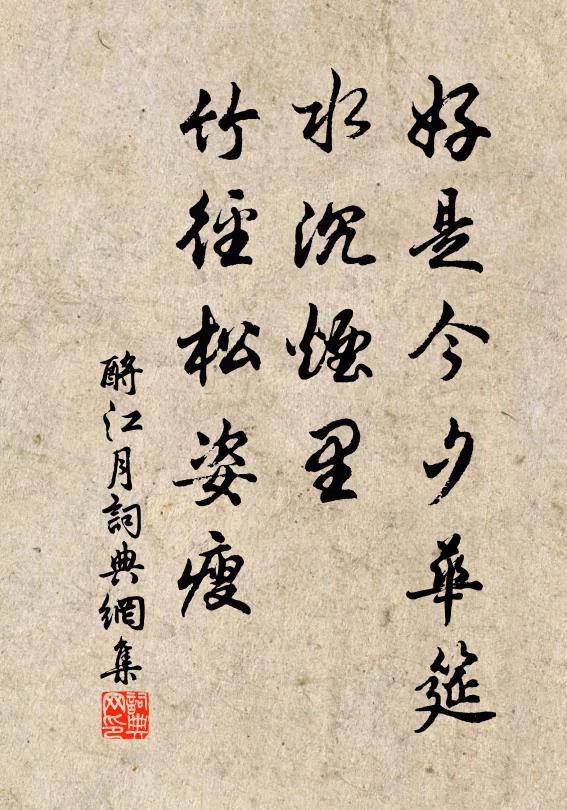 好是今夕華筵
水沉煙里
竹徑松姿瘦
酹江月詞典網集
詞典
网印